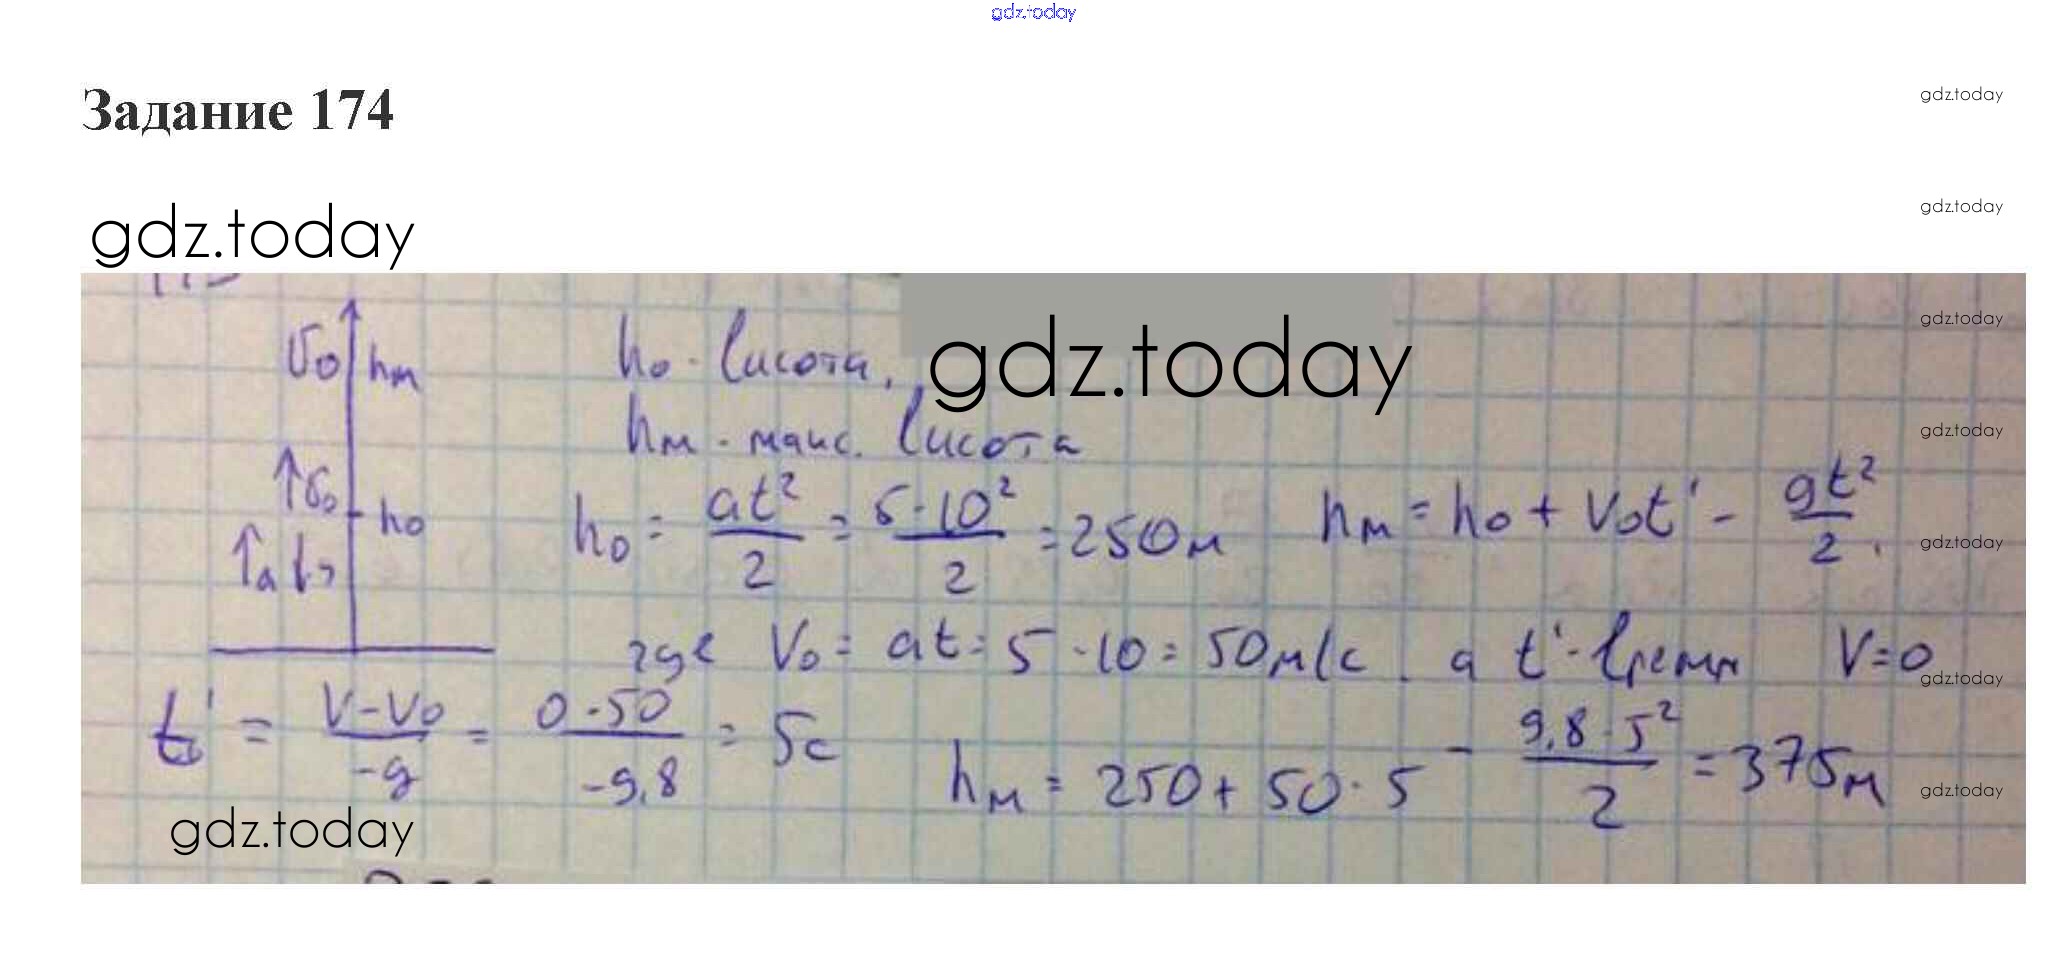 gdz.today
Задание 174
gdz.today
gdz.today
gdz.today
gdz.today
v₀ hм
h₀ - висота,
gdz.today
gdz.today
hм - макс. висота
gdz.today
↑v₀
h₀
↑a
h₀ = at²/2 = 5·10²/2 = 250м hм = h₀ + v₀t' - gt²/2.
gdz.today
где V₀ = at = 5·10 = 50м/с, а t' - время V=0
gdz.today
t' = V-V₀/-g = 0-50/-9,8 = 5с hм = 250 + 50·5 - 9,8·5²/2 = 375м
gdz.today
gdz.today